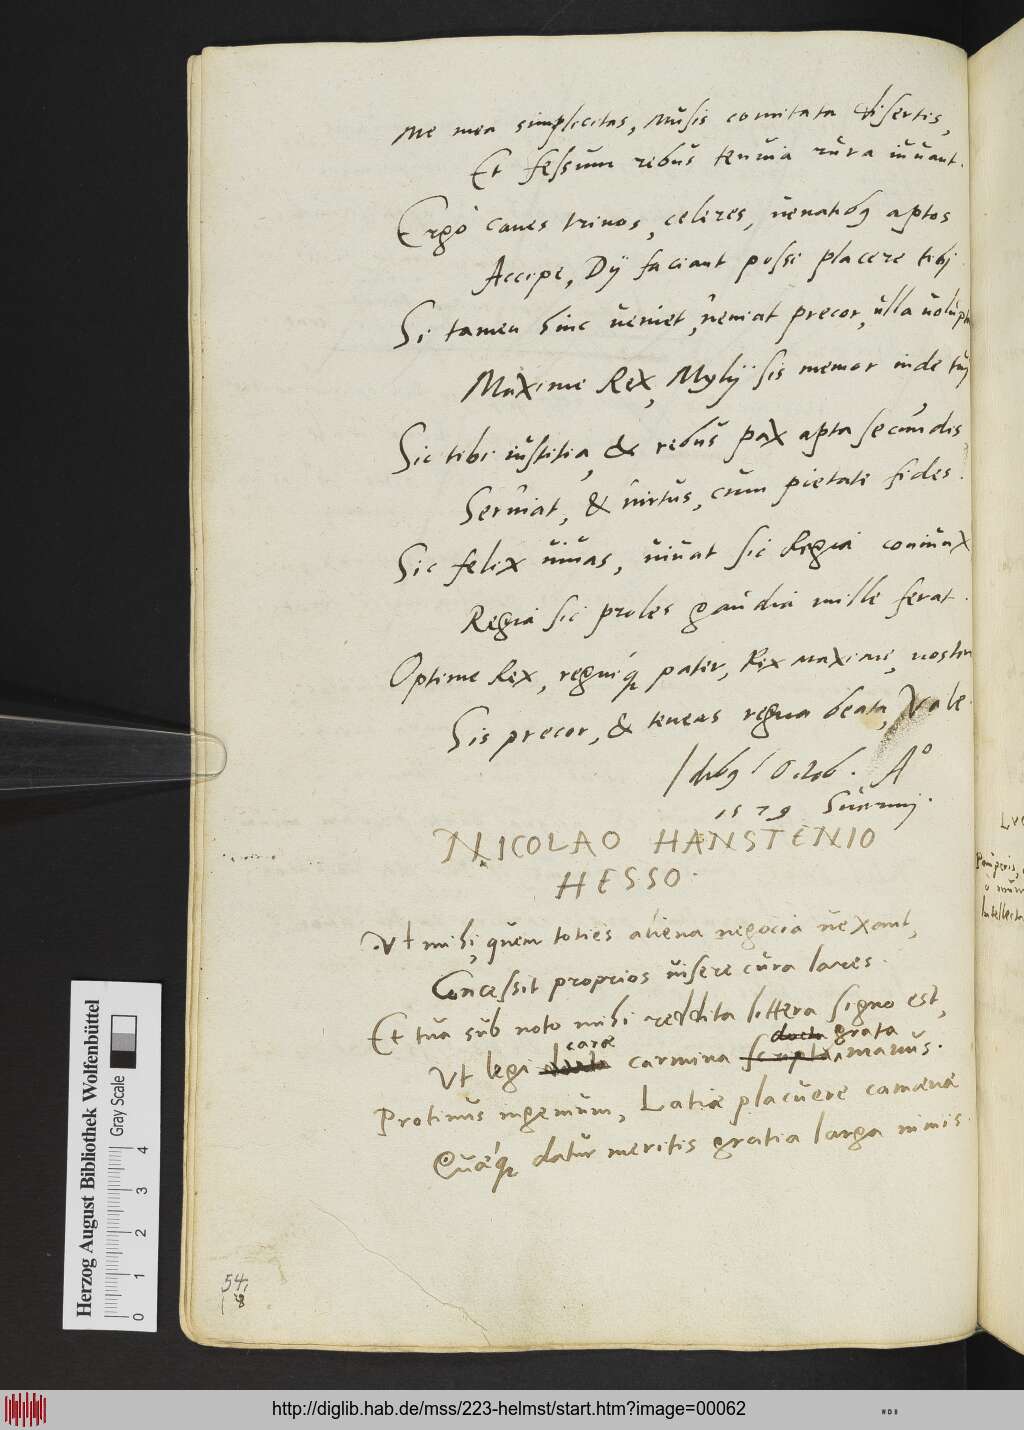 Me mea simplicitas, Musis comitata disertis,
Et fessum rebus tenuia rura iuuant.
Ergò canes trinos, celeres, uenatibq aptos
Accipe, Dij faciant possi placere tibj
Si tamen hinc ueniet, ueniat precor, ulla uolupt
Maxime Rex, Mylij sis memor inde tuj
Sic tibi iustitia, & rebus pax apta secundis
Seruiat, & uirtus, cum pietate fides.
Sic felix uiuas, uiuat sic Regia coniunx
Regia sic proles gaudia mille ferat.
Optime Rex, regniq́ue pater, Rex maxime, noster
Sis precor, & teneas regna beata, Vale.
Idibq Octob. A°
1579 Suarinj.
NICOLAO HANSTENIO
HESSO.
Vt mihi, quem toties aliena negocia uexant,
Concessit proprios uisere cura lares.
Et tua sub noto mihi reddita littera signo est,
caræ docta grata
Vt legi docta carmina scripta, manus.
Protinus ingenium, Latiæ placuere camænæ
Quæq́ue datur meritis gratia larga nimis.
54,
18
Herzog August Bibliothek Wolfenbüttel
Gray Scale
0 1 2 3 4
http://diglib.hab.de/mss/223-helmst/start.htm?image=00062